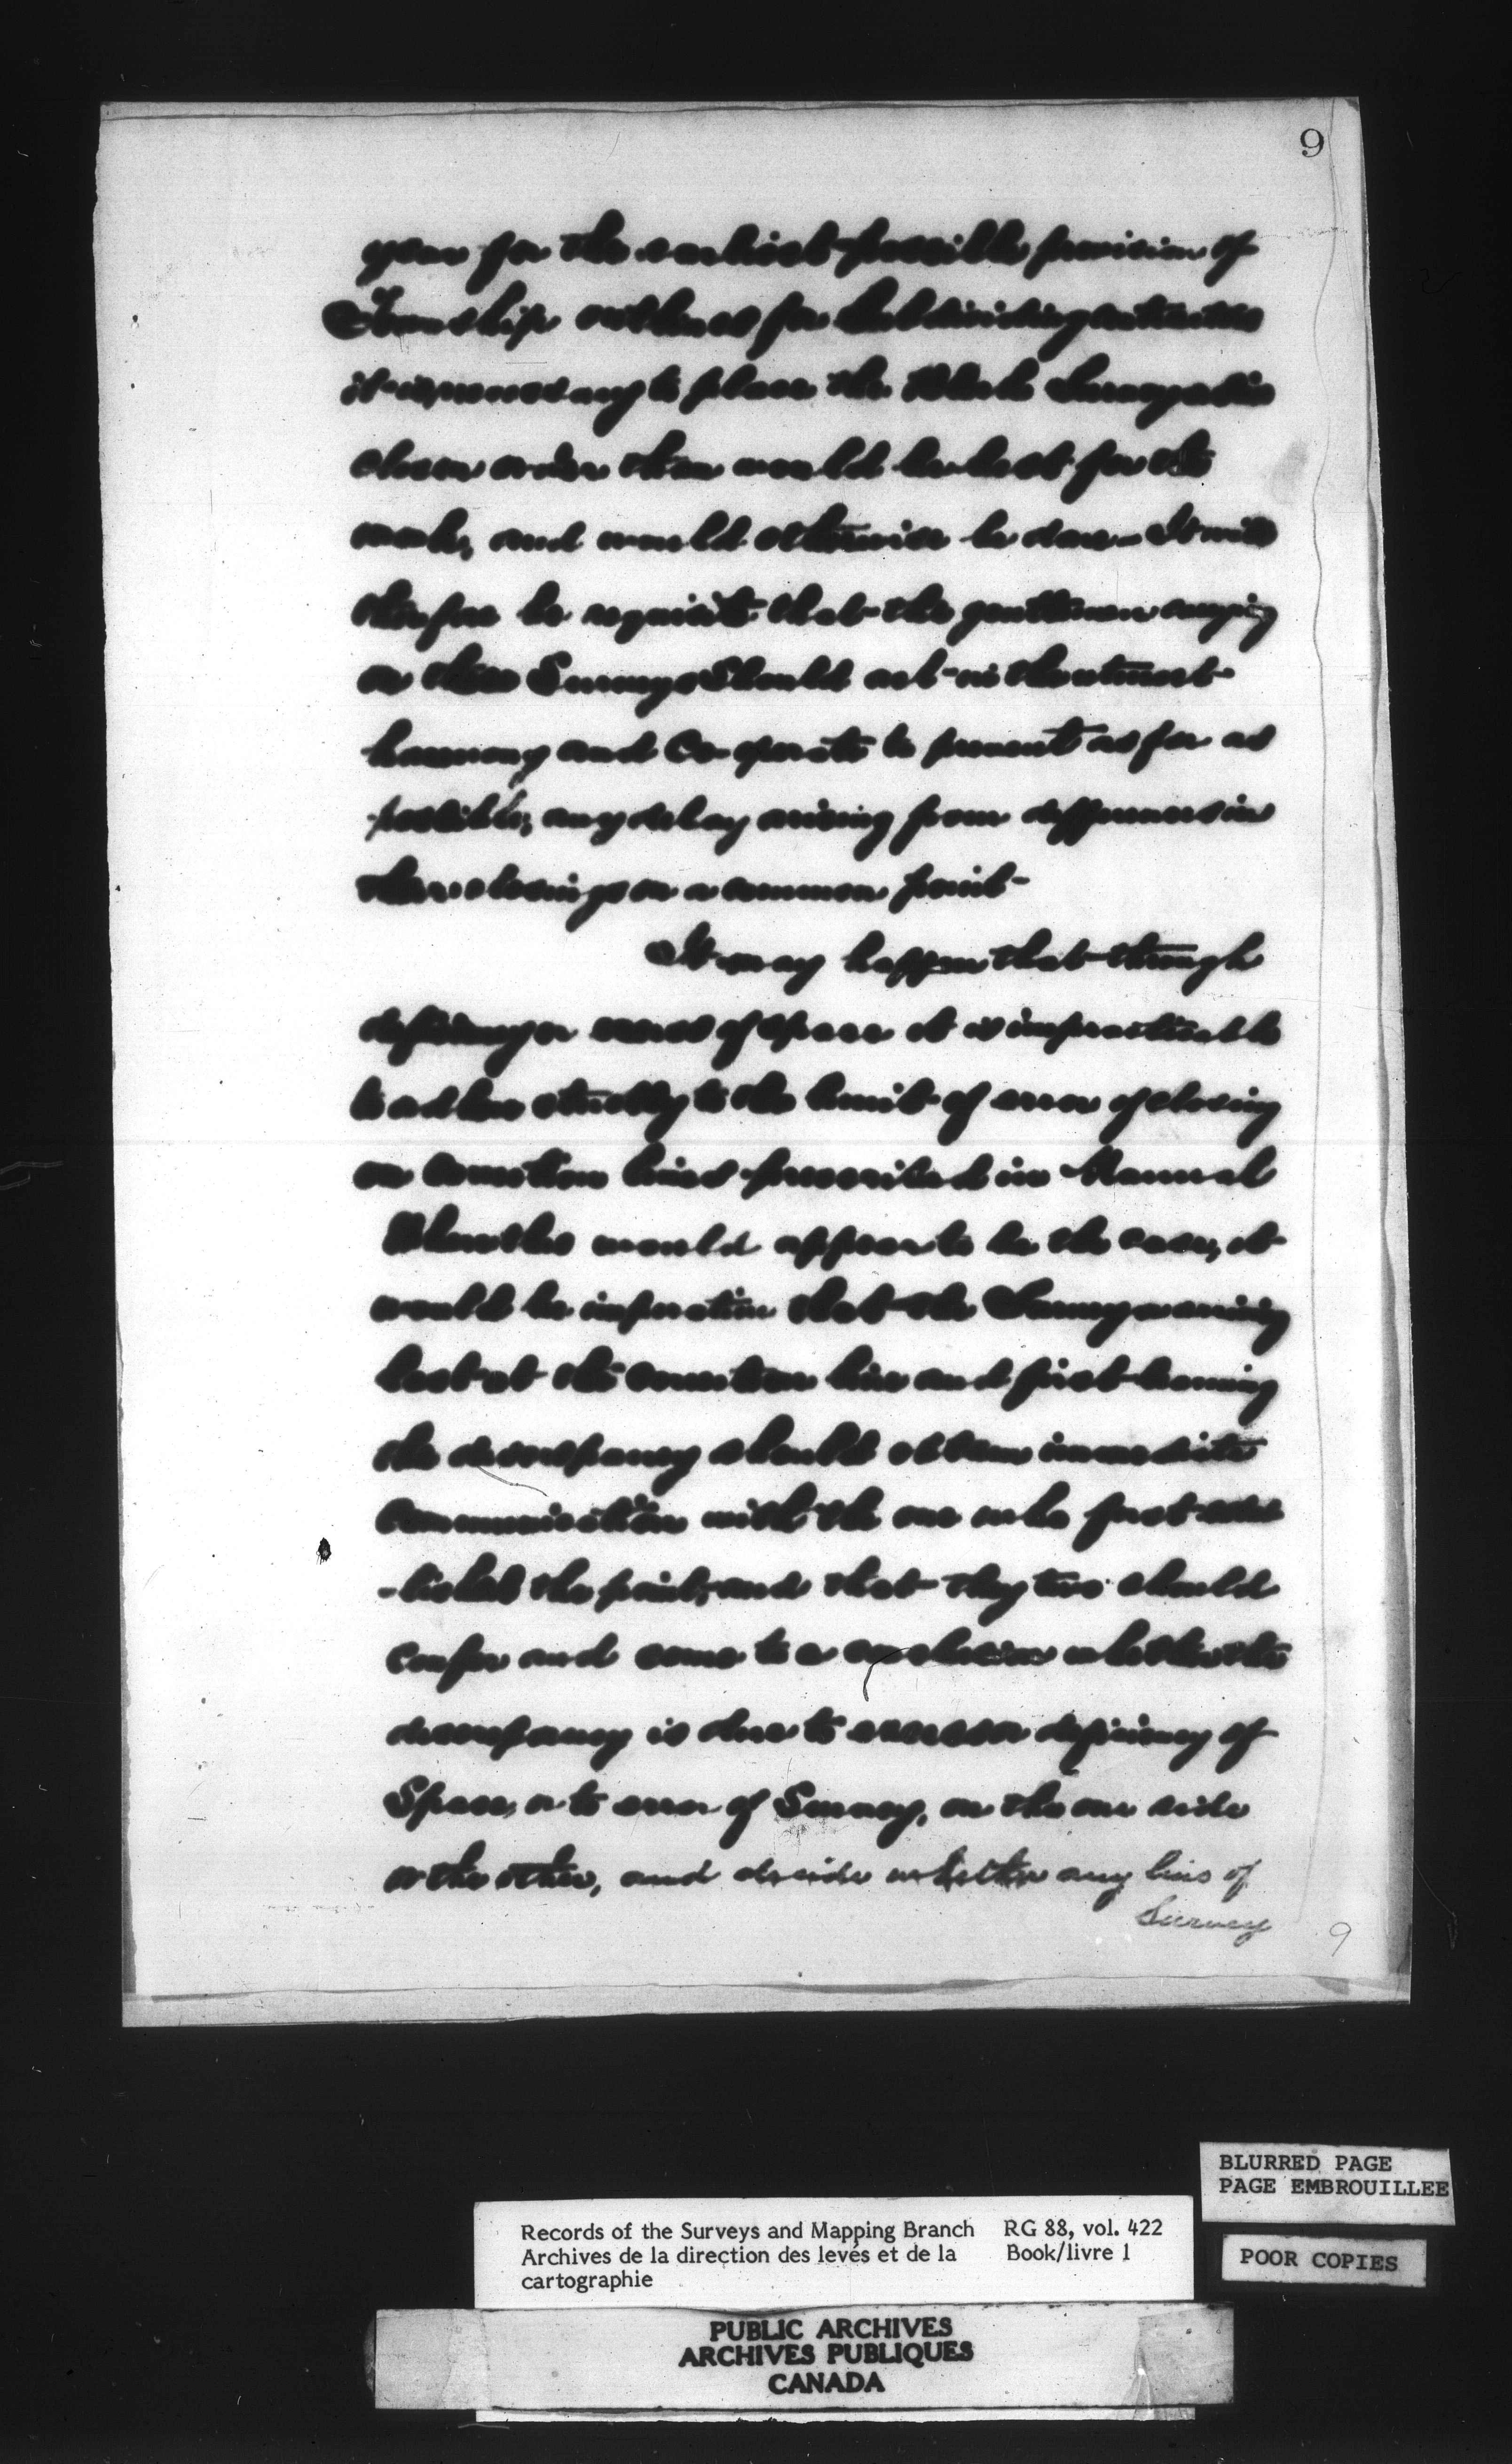 9
year for the earliest possible provision of
Township outlines for Subdividing
it is necessary to place the Block Surveys in
closer order than would be best for the
work, and would otherwise be done - It will
therefore be requisite that the gentlemen carrying
on these Surveys Should act in the utmost
harmony and Co-operate to prevent as far as
possible, any delay arising from differences in
their closings on a common point -
It may happen that through
deficiency or excess of space it is impracticable
to adhere strictly to the limit of error of closing
on Correction lines prescribed in Manual
When this would appear to be the case, it
would be imperative that the Surveyor arriving
last at the Correction line and first learning
the discrepancy should obtain immediate
Communication with the one who first estab
-lished the point, and that they two should
confer and come to a conclusion whether the
discrepancy is due to excess or deficiency of
Space, or to error of Survey, on the one side
or the other, and decide whether any lines of
Survey
9
BLURRED PAGE
PAGE EMBROUILLEE
Records of the Surveys and Mapping Branch RG 88, vol. 422
Archives de la direction des levés et de la Book/livre 1
cartographie
POOR COPIES
PUBLIC ARCHIVES
ARCHIVES PUBLIQUES
CANADA